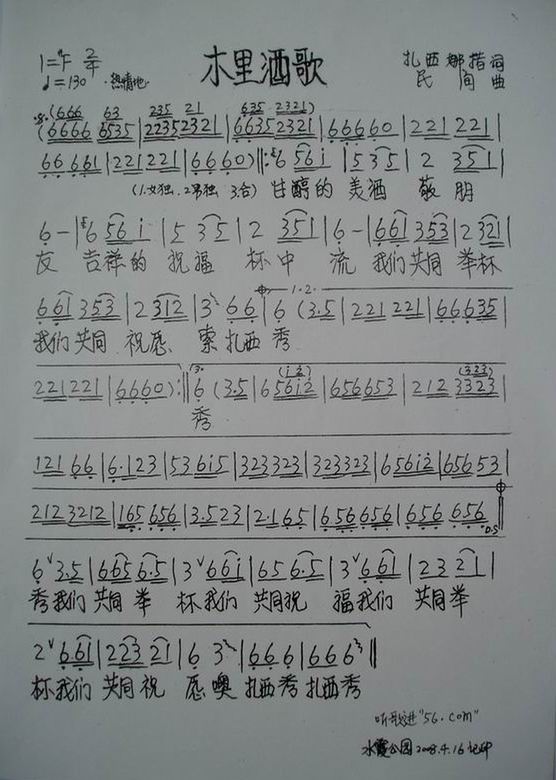 木里酒歌
1=ᵇF 2/4
♩=130 热情地
扎西娜措 词
民间 曲
(666 63 235 21 635 2321)
(6666 6535 | 2235 2321 | 6635 2321 | 66660 | 221 221 |
66 661 | 221 221 | 6660) ‖: 6 56i | 5 35 | 2 351 |
(1.女独. 2.男独 3.合) 甘醇的 美酒 敬 朋
6 – | 6 56 i | 5 35 | 2 351 | 6 – | 661 353 | 2 321 |
友 吉祥的 祝福 杯中 流 我们共同 举杯
1.2.
661 353 | 2 312 | 3 66 | 6 (3.5 | 221 221 | 66635 |
我们共同 祝愿 索扎西 秀
3. (i2) (323)
221 221 | 6660) :‖ 6 (3.5 | 656i2 | 656653 | 212 3323 |
秀
121 66 | 6.123 | 536i5 | 323323 | 323323 | 656i2 | 65653 |
2123212 | 165 656 | 3.523 | 2.165 | 656656 | 656 656 ‖
D.S
6 3.5 | 665 6.5 | 3 66i | 65 6.5 | 3 661 | 23 21 |
秀我们 共同 举 杯我们 共同祝 福我们 共同举
2 6.61 | 223 21 | 6 3 | 66 6 | 666 ‖
杯我们 共同祝 愿噢 扎西秀扎西秀
听歌进"56.com"
水霞公园2008.4.16记印